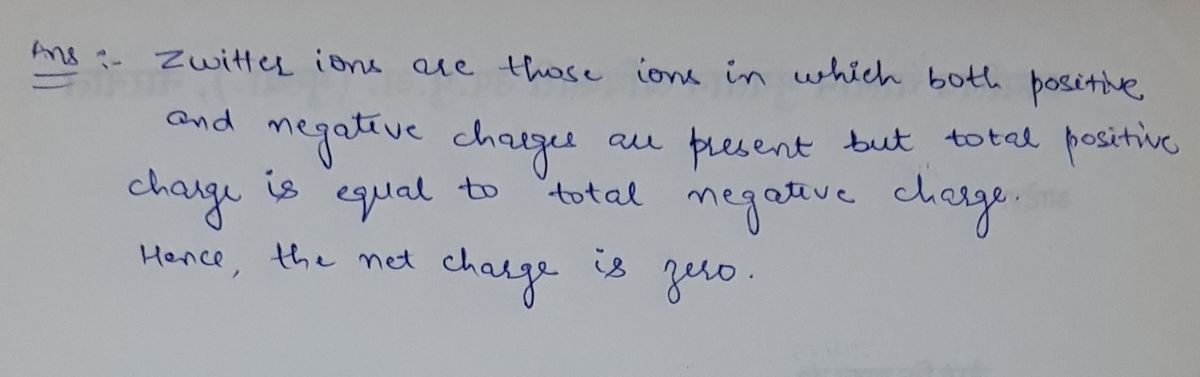 Ans :- Zwitter ions are those ions in which both positive
and negative charges are present but total positive
charge is equal to total negative charge.
Hence, the net charge is zero.